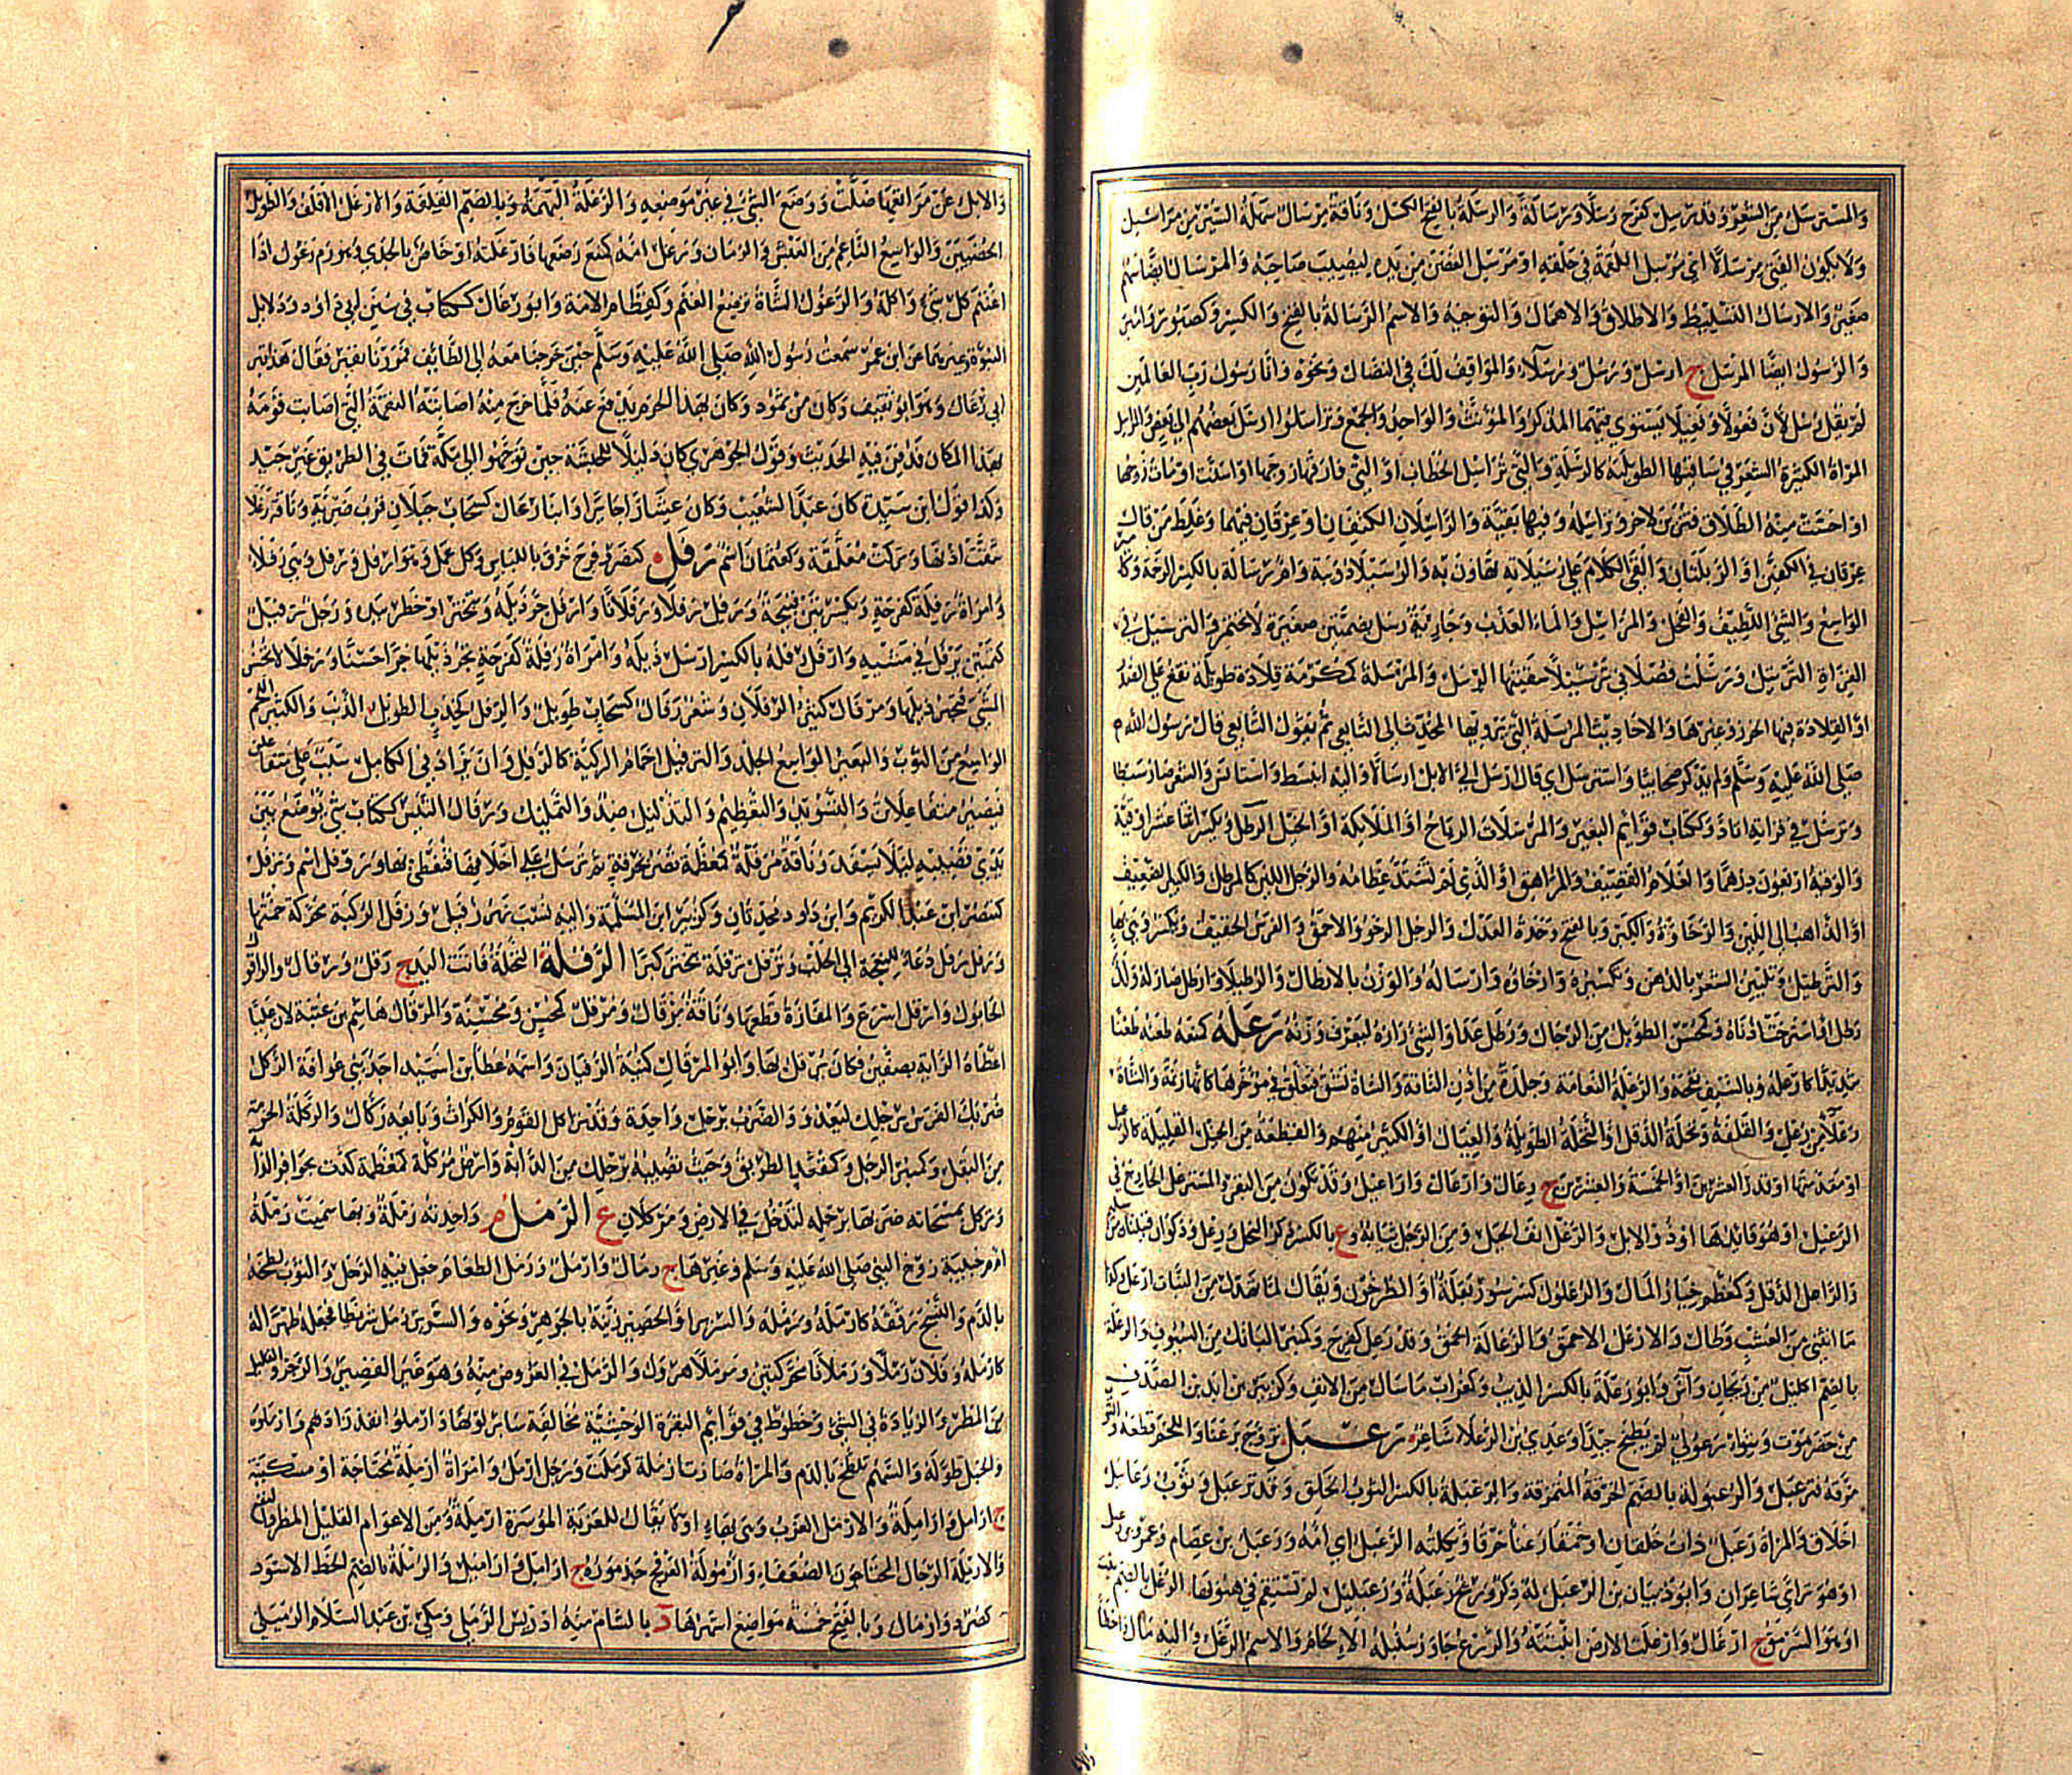 والمسترسل من الشعر وقد رسل كفرح رسلا ورسالة والرسلة بالفتح الكسل وناقة مرسال سهلة السير من مراسيل
ولا يكون الفتى مرسالا اي مرسل اللقمة في حلقه او مرسل الغصن من يده ليصيب صاحبه والمرسال ايضا سهم
صغير والارسال التسليط والاطلاق والاهمال والتوجيه والاسم الرسالة بالفتح والكسر وكصبور وامير
والرسول ايضا المرسل ج ارسل ورسل ورسلاء والموافق لك في النضال ونحوه وانا رسول رب العالمين
لم يقل رسل لان فعولا وفعيلا يستوي فيهما المذكر والمؤنث والواحد والجمع وتراسلوا ارسل بعضهم الى بعض والمراسل
المراة الكثيرة الشعر في ساقيها الطويلته كالرسلة والتي تراسل الخطاب او التي فارقها زوجها او اسنت او مات زوجها
او احست منه الطلاق فتزين لاخر وتراسله وفيها بقية والراسلان الكتفان او عرقان فيهما وغلط من قال
عرقان في الكفين او الوابلتان والقى الكلام على رسيلاته تهاون به والرسيلاء دويبة وام رسالة بالكسر الرخمة وكامير
الواسع والشيء اللطيف والفحل والمراسل والماء العذب وجارية رسل بضمتين صغيرة لا تختمر والترسيل في
القراءة الترتيل ورسلت فصلاني ترسيلا سقيتها الرسل والمرسلة كمكرمة قلادة طويلة تقع على الصدر
او القلادة فيها الخرز وغيرها والاحاديث المرسلة التي يرويها المحدث الى التابعي ثم يقول التابعي قال رسول الله
صلى الله عليه وسلم ولم يذكر صحابيا واسترسل اي قال ارسل الي الابل ارسالا واليه انبسط واستانس والشعر صار سبطا
وترسل في قراءته اتاد وككتاب قوائم البعير والمرسلات الرياح او الملايكة او الخيل الرطل ويكسر اثنا عشر اوقية
والوقية اربعون درهما والغلام القضيف والمراهق او الذي لم تشتد عظامه والرجل اللين كالمرطل والكبير الضعيف
او الذاهب الى اللين والرخاوة والكبر وبالفتح وحده العدل والرجل الرخو والاحمق والفرس الخفيف ويكسر وهي بهاء
والترطيل تليين الشعر بالدهن وتكسيره وارخاؤه وارساله والوزن بالارطال والرطيلاء وارطل صار له ولد
رطل او استرخت اذناه وكمحسن الطويل من الرجال ورطل عدا والشيء رازه ليعرف وزنه رعله كمنعه طعنه طعنا
شديدا كارعله وبالسيف نفحه والرعلة النعامة وجلدة من اذن الناقة والشاة تشق فتعلق في مؤخرها كانها زنمة والشاة
رعلاء من رعل والقلفة ونخلة الدقل او النخلة الطويلة والعيال او الكثير منهم والقطعة من الخيل القليلة كالرعيل
او مقدمتها او قدر العشرين او الخمسة والعشرين ج رعال وارعال واراعيل وقد تكون من البقر والمسترعل الخارج في
الرعيل او هو قائدها او ذو الابل والرعل انف الجبل ومن الرجل ثيابه وع بالكسر ذكر النحل ورعل وذكوان قبيلتان من سليم
والراعل الدقل وكمعظم خيار المال والرعلول كسرسور بقلة او الطرخون ويقال لما تهدل من النبات ارعل وكذا
ما انثنى من العشب وطال والارعل الاحمق والرعالة الحمق وقد رعل كفرح وكمنبر الباتك من السيوف والرعلة
بالضم اكليل من ريحان وآس وابو رعلة بالكسر الذيب وكغراب ما سال من الانف وكزبير بن ابد بن الصدف
من حضرموت وشواء رعولي لم يطبخ جيدا وعدي بن الرعلاء شاعر رعبل تزوج برعناء واللحم قطعه والثوب
مزقه فترعبل والرعبولة بالضم الخرقة المتمزقة والرعبلة بالكسر الثوب الخلق وقد ترعبل وثوب رعابيل
اخلاق والمراة رعبل ذات خلقان او حمقاء رعناء خرقاء وثكلته الرعبل اي امه ورعبل بن عصام وعمرو بن رعبل
او هو شراي شاعران وابو ذبيان بن الرعبل له ذكر وريح رعبلة ورعبليل لم تستقم في هبوبها الرغل بالضم نبت
او هو السرمق ج ارغال وارغلت الارض انبتته والزرع جاوز سنبله الالحام والاسم الرغل واليه مال واخطا
والابل عن مراتعها ضلت ووضع الشيء في غير موضعه والرغلة البهمة وبالضم القلفة والارغل الاقلف والطويل
الخصيتين والواسع الناعم من العيش والزمان ورغل امه كمنع رضعها فارغلته او خاص بالجدي وهو رم رغول اذا
اغتنم كل شيء واكله والرغول الشاة ترضع الغنم وكقطام الامة وابو رغال ككتاب في سنن ابي داود ودلائل
النبوة وغيرهما عن ابن عمر سمعت رسول الله صلى الله عليه وسلم حين خرجنا معه الى الطائف فمررنا بقبر فقال هذا قبر
ابي رغال وهو ابو ثقيف وكان من ثمود وكان بهذا الحرم يدفع عنه فلما خرج منه اصابته النقمة التي اصابت قومه
بهذا المكان فدفن فيه الحديث وقول الجوهري كان دليلا للحبشة حين توجهوا الى مكة فمات في الطريق غير جيد
وكذا قول ابن سيده كان عبدا لشعيب وكان عشارا جائرا وابنا رغال كسحاب جبلان قرب ضرية وناقة رغلاء
شقت اذنها وتركت معلقة وكعثمان اسم رفل كنصر وفرح خرق باللباس وكل عمل وهو ارفل ورفل وهي رفلاء
وامراة رفلة كفرحة وبكسرتين قبيحة ورفل رفلا ورفلانا وارفل جر ذيله وتبختر او خطر بيده ورجل ترفيل
كتمتين يرفل في مشيه وارفل رفله بالكسر ارسل ذيله وامراة رفلة كفرحة تجر ذيلها جرا حسنا ورفلاء لا تحسن
المشي فتجر ذيلها ومرفال كثير الرفلان وشعر رفال كسحاب طويل والرفل كخدب الطويل الذنب والكثير اللحم
الواسع من الثوب والبعير الواسع الجلد والترفيل اجمام الركية كالرفل وان يزاد في الكامل سبب على متفاعلن
فيصير متفاعلاتن والتسويد والتعظيم والتذليل ضد والتمليك ورفال التيس ككتاب شيء يوضع بين
يدي قضيبه ليلا يسفد وناقة مرفلة كمعظمة تصر بخرقة ثم ترسل على اخلافها فتغطى بها وروفل اسم ورفل
كنصر ابن عبد الكريم وابن داود محدثان وكزبير ابن المسلمة واليه نسب نهر رفيل ورفل الركية محركة حمئتها
ورفل رفل دعاء للنعجة الى الحلب وترفل ترفلة تبختر كبرا الرقلة النخلة فاتت اليد ج رقل ورقال والراقول
الحابول وارقل اسرع والمفازة قطعها وناقة مرقال ومرقل كمحسن ومحسنة والمرقال هاشم بن عتبة لان عليا
اعطاه الراية بصفين فكان يرقل بها وابو المرقال كنية الزفيان واسمه عطاء بن اسيد احد بني عوافة الركل
ضربك الفرس برجلك ليعدو والضرب برجل واحدة وقد تراكل القوم والكراث وبايعه ركال والركلة الحزمة
من البقل وكمنبر الرجل وكمقعد الطريق وحيث تصيبه برجلك من الدابة وارض مركلة كمعظمة كدت بحوافر الدواب
وتركل بمسحاته ضربها برجله لتدخل في الارض ومركلان ع الرمل م واحدته رملة وبها سميت رملة
ام حبيبة زوج النبي صلى الله عليه وسلم وغيرها ج رمال وارمل ورمل الطعام جعل فيه الرمل والثوب لطخه
بالدم والنسج رققه كارمله ورمله والسرير او الحصير زينه بالجوهر ونحوه والسرير رمل شريطا فجعله ظهرا له
كارمله وفلان رملا ورملانا محركتين ومرملا هرول والرمل في العروض منه وهو غير القصيد والرجز والقليل
من المطر والزيادة في الشيء وخطوط في قوائم البقرة الوحشية مخالفة سائر لونها وارملوا نفد زادهم وارملوه
والحبل طوله والسهم تلطخ بالدم والمراة صارت ارملة كرملت ورجل ارمل وامراة ارملة محتاجة او مسكينة
ج ارامل واراملة والارمل العزب وهي بهاء او لا يقال للعزبة الموسرة ارملة ومن الاعوام القليل المطر والنفع
والارملة الرجال المحتاجون الضعفاء وارمولة العرفج جذموره ج ارامل واراميل والرملة بالضم الخط الاسود
كصرد وارمال وبالفتح خمسة مواضع اشهرها د بالشام منه ادريس الرملي ومكي بن عبد السلام الرميلي